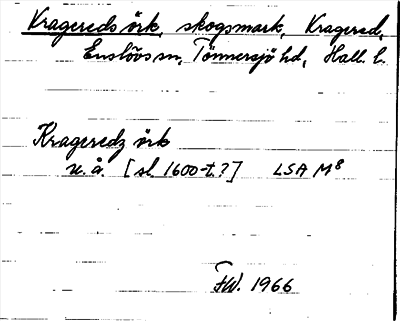 Krageredsörk, skogsmark, Kragered,
Enslövs sn, Tönnersjö hd, Hall. l.
Krageredz örk
u. å. [sl. 1600-t.?] LSA M⁸
FW. 1966